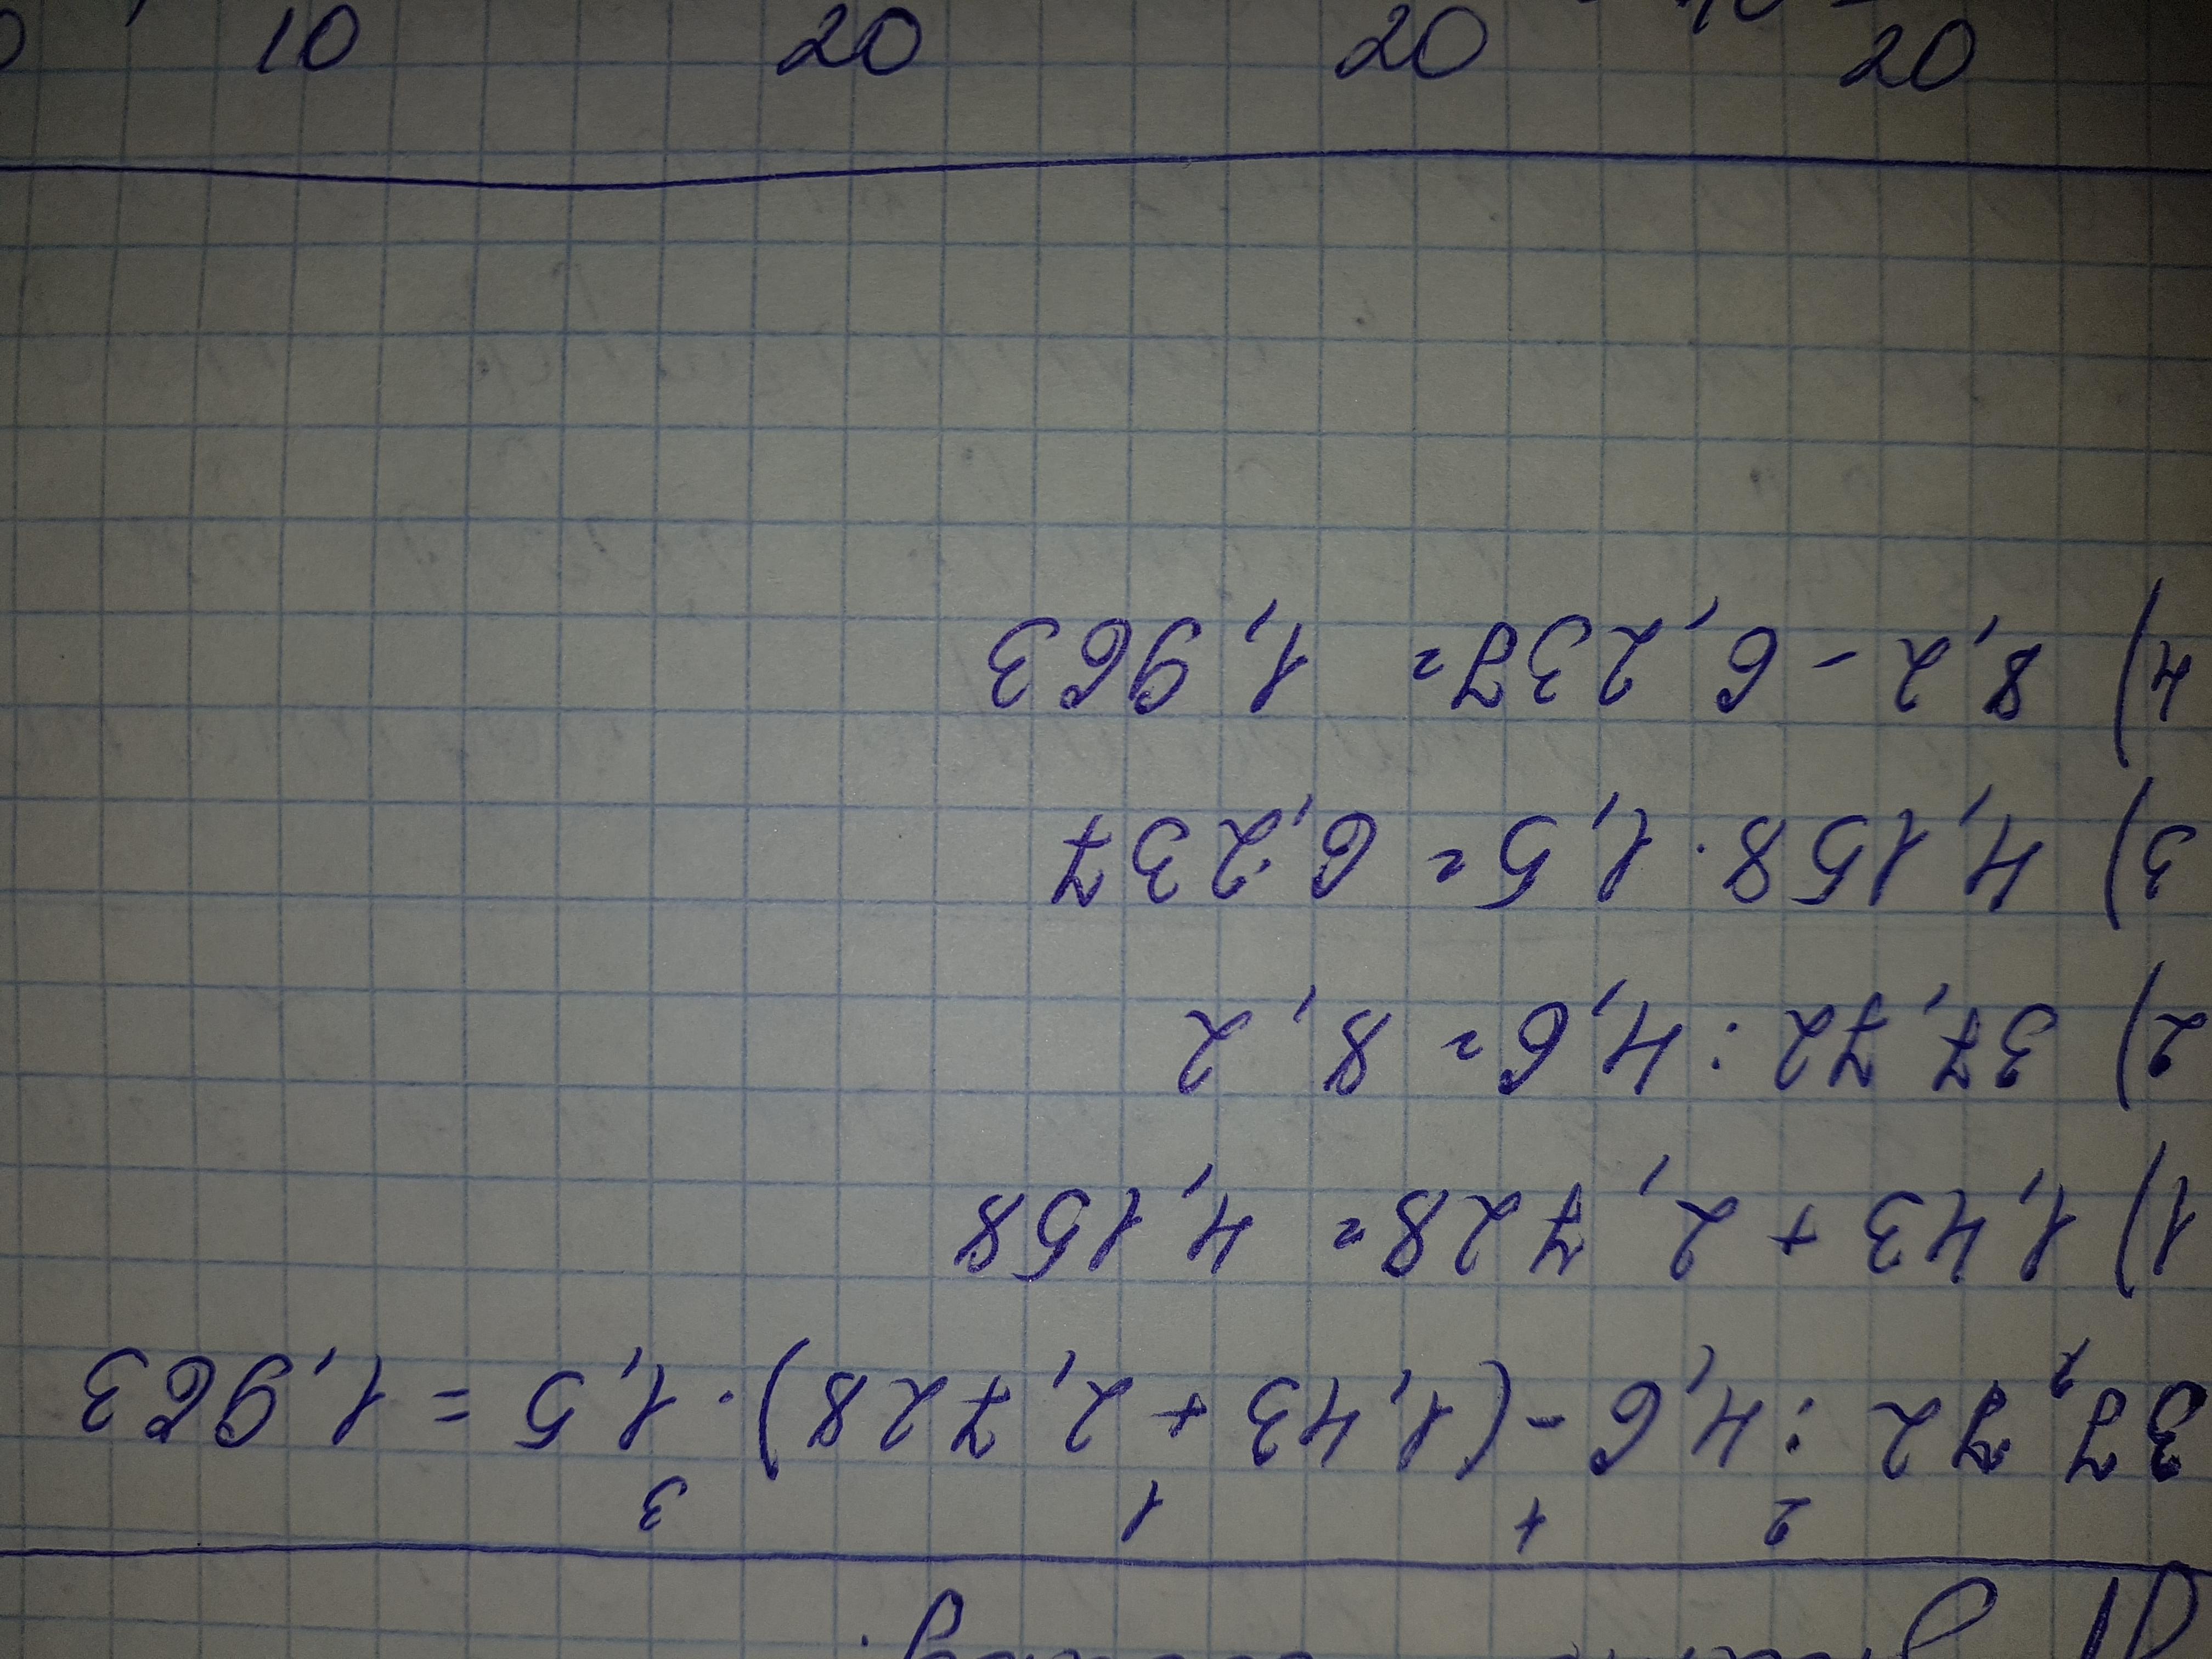 2 4 1 3
37,72 : 4,6 - (1,43 + 2,728) · 1,5 = 1,963
1) 1,43 + 2,728 = 4,158
2) 37,72 : 4,6 = 8,2
3) 4,158 · 1,5 = 6,237
4) 8,2 - 6,237 = 1,963
10 20 20 20